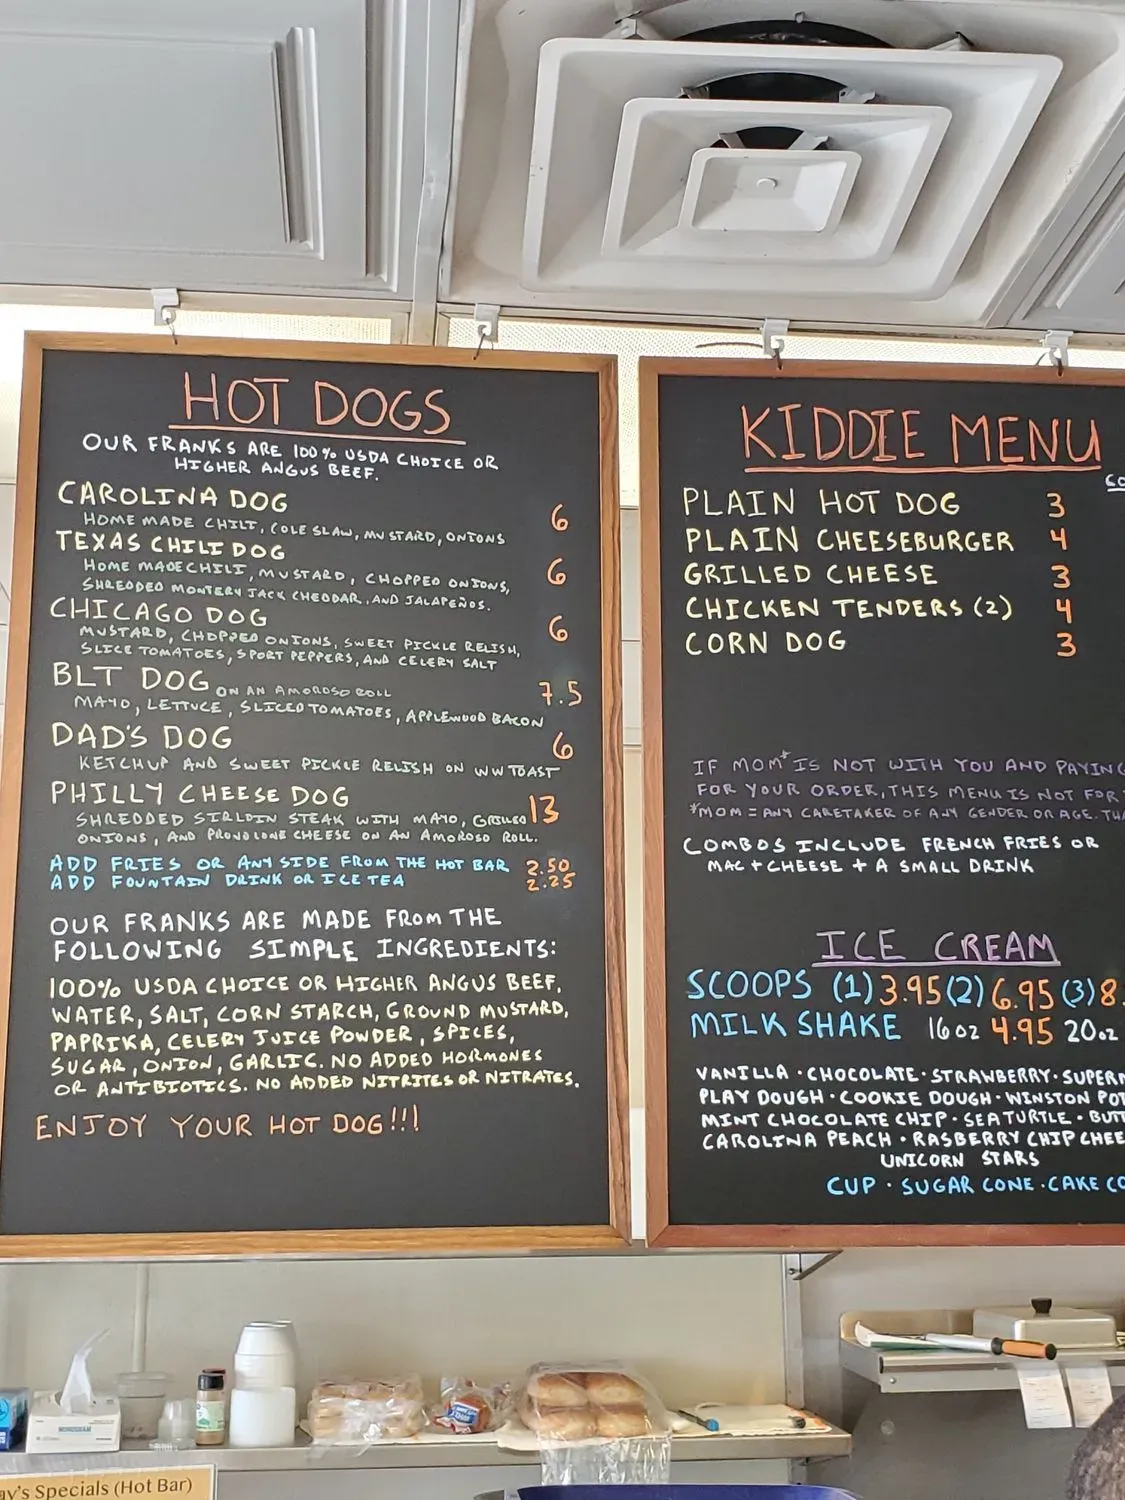 HOT DOGS
OUR FRANKS ARE 100% USDA CHOICE OR
HIGHER ANGUS BEEF.
CAROLINA DOG 6
HOME MADE CHILI, COLE SLAW, MUSTARD, ONIONS
TEXAS CHILI DOG 6
HOME MADE CHILI, MUSTARD, CHOPPED ONIONS,
SHREDDED MONTERY JACK CHEDDAR, AND JALAPEÑOS.
CHICAGO DOG 6
MUSTARD, CHOPPED ONIONS, SWEET PICKLE RELISH,
SLICE TOMATOES, SPORT PEPPERS, AND CELERY SALT
BLT DOG ON AN AMOROSO ROLL 7.5
MAYO, LETTUCE, SLICED TOMATOES, APPLEWOOD BACON
DAD'S DOG 6
KETCHUP AND SWEET PICKLE RELISH ON WW TOAST
PHILLY CHEESE DOG 13
SHREDDED SIRLOIN STEAK WITH MAYO, GRILLED
ONIONS, AND PROVOLONE CHEESE ON AN AMOROSO ROLL.
ADD FRIES OR ANY SIDE FROM THE HOT BAR 2.50
ADD FOUNTAIN DRINK OR ICE TEA 2.25
OUR FRANKS ARE MADE FROM THE
FOLLOWING SIMPLE INGREDIENTS:
100% USDA CHOICE OR HIGHER ANGUS BEEF,
WATER, SALT, CORN STARCH, GROUND MUSTARD,
PAPRIKA, CELERY JUICE POWDER, SPICES,
SUGAR, ONION, GARLIC. NO ADDED HORMONES
OR ANTIBIOTICS. NO ADDED NITRITES OR NITRATES.
ENJOY YOUR HOT DOG!!!
KIDDIE MENU
PLAIN HOT DOG 3
PLAIN CHEESEBURGER 4
GRILLED CHEESE 3
CHICKEN TENDERS (2) 4
CORN DOG 3
IF MOM* IS NOT WITH YOU AND PAYING
FOR YOUR ORDER, THIS MENU IS NOT FOR
*MOM = ANY CARETAKER OF ANY GENDER OR AGE.
COMBOS INCLUDE FRENCH FRIES OR
MAC + CHEESE + A SMALL DRINK
ICE CREAM
SCOOPS (1) 3.95 (2) 6.95 (3) 8.
MILK SHAKE 16oz 4.95 20oz
VANILLA · CHOCOLATE · STRAWBERRY · SUPERM
PLAY DOUGH · COOKIE DOUGH · WINSTON POT
MINT CHOCOLATE CHIP · SEA TURTLE · BUTT
CAROLINA PEACH · RASBERRY CHIP CHEE
UNICORN STARS
CUP · SUGAR CONE · CAKE CO
ay's Specials (Hot Bar)